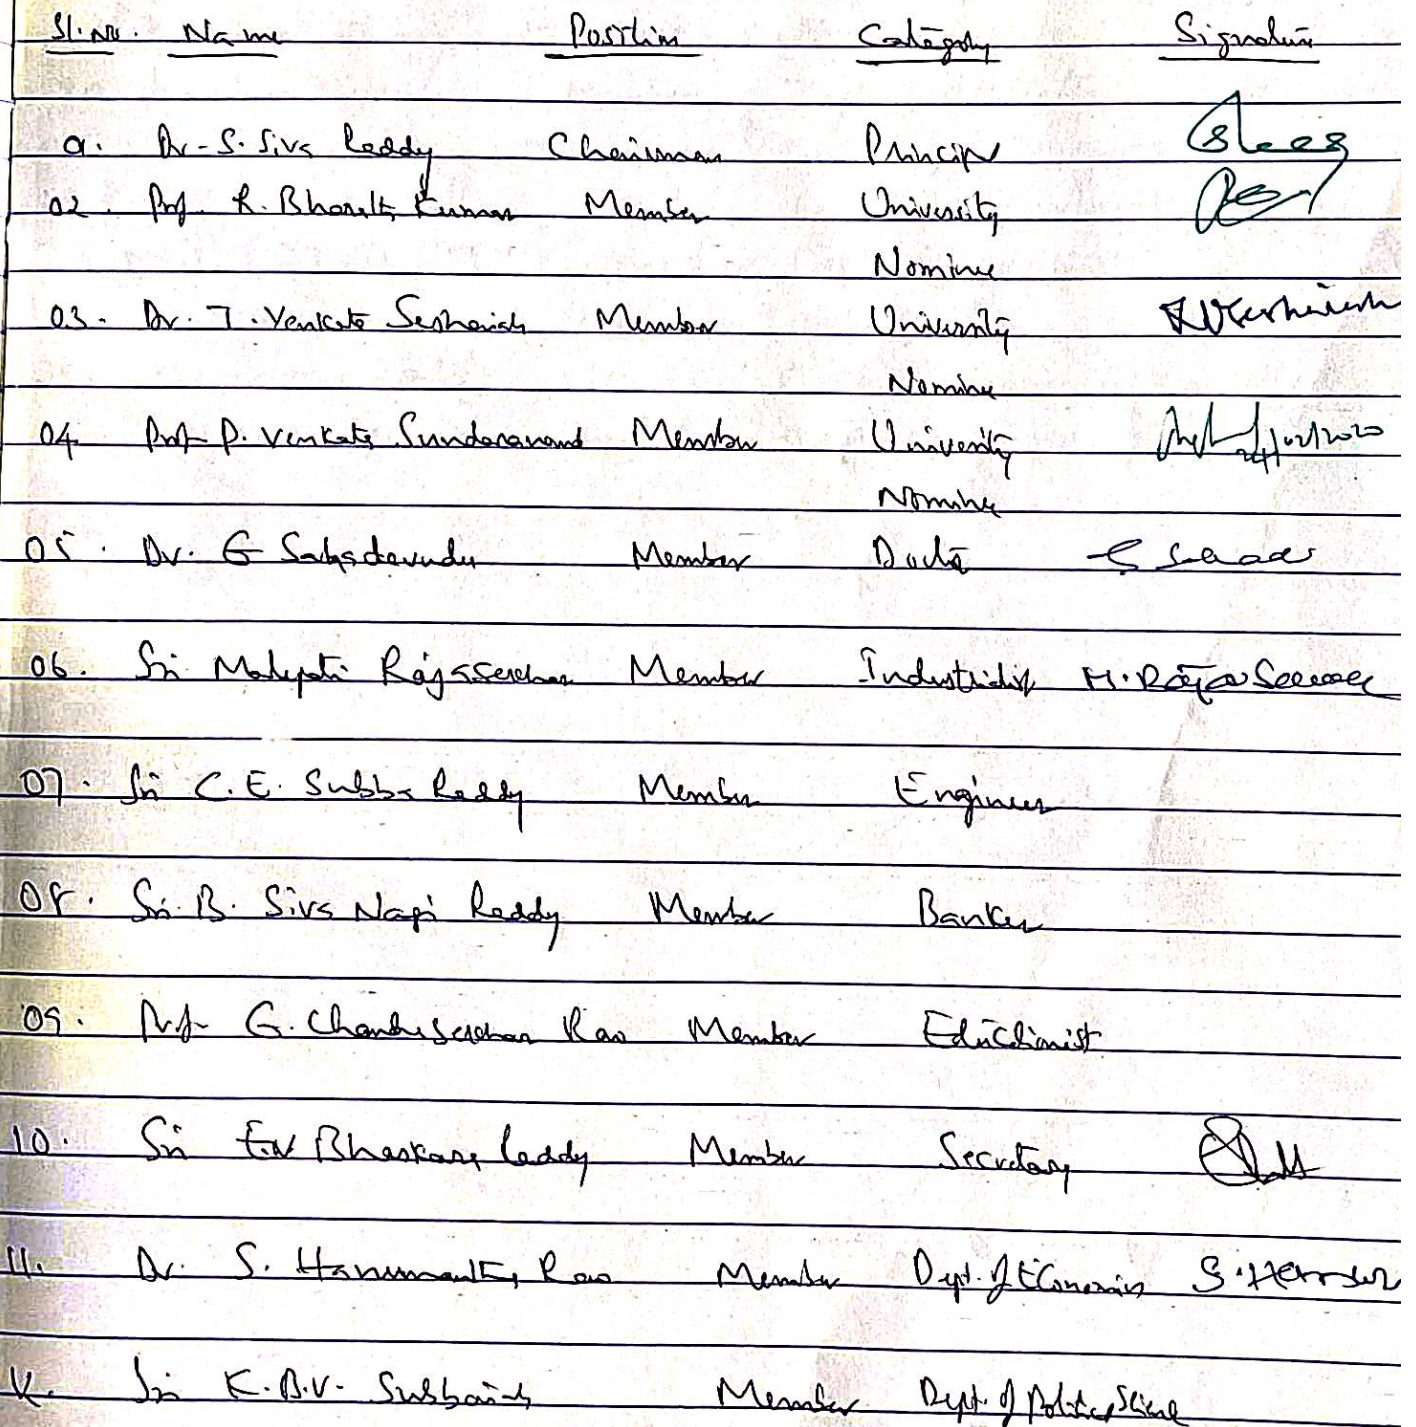 Sl.No. Name Position Category Signature
01. Dr. S. Siva Reddy Chairman Principal
02. Prof. R. Bharath Kumar Member University
Nominee
03. Dr. T. Venkata Seshaiah Member University
Nominee
04. Prof P. Venkata Sundaranand Member University 24/02/2020
Nominee
05. Dr. G Sahadevudu Member Doctor
06. Sri Rajasekhar Member Industrialist M. Rajasekhar
07. Sri C. E. Subba Reddy Member Engineer
08. Sri. B. Siva Nagi Reddy Member Banker
09. Prof. G. Chandrasekhar Rao Member Eductionist
10. Sri Bhaskara Reddy Member Secretary
11. Dr. S. Hanumantha Rao Member Dept. of Economics
12. Sri K. B. V. Subbaiah Member Dept. of Political Science